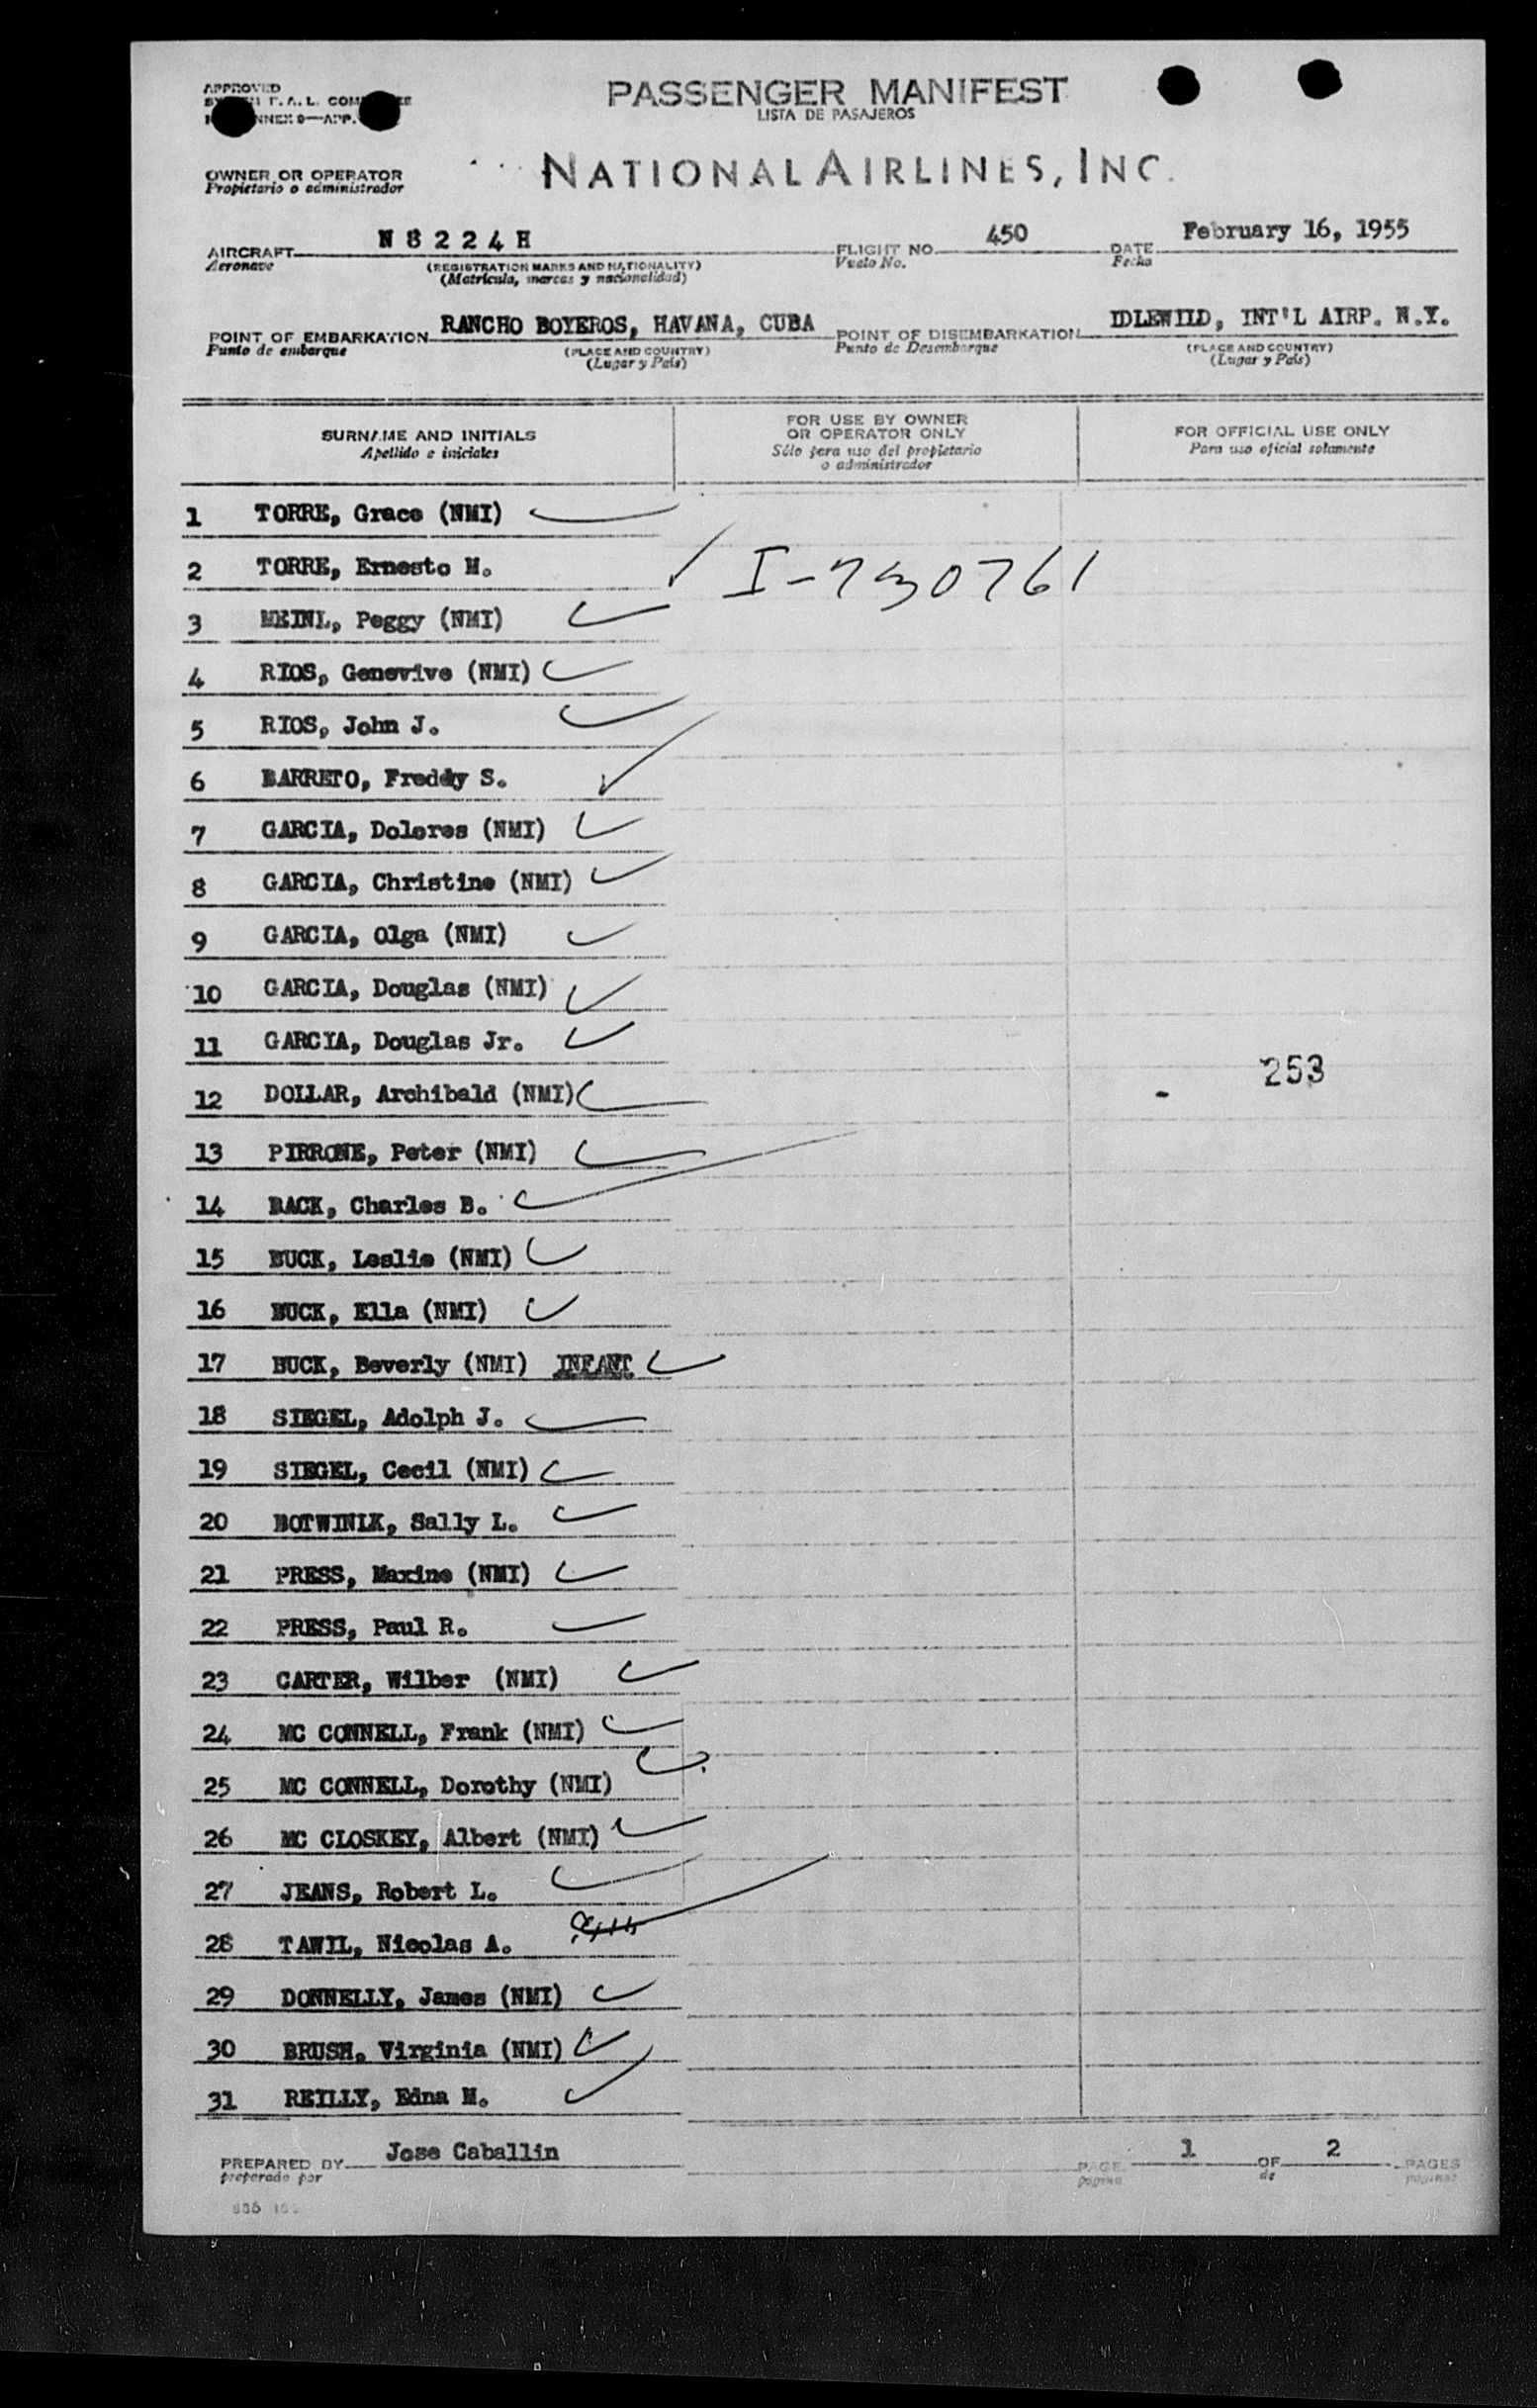 APPROVED
F. A. L. COM
NNEX 9—APP.
PASSENGER MANIFEST
LISTA DE PASAJEROS
OWNER OR OPERATOR
Propietario o administrador
NATIONAL AIRLINES, INC.
AIRCRAFT N 8 2 2 4 H FLIGHT NO. 450 DATE February 16, 1955
Aeronave (REGISTRATION MARKS AND NATIONALITY) Vuelo No. Fecha
(Matricula, marcas y nacionalidad)
POINT OF EMBARKATION RANCHO BOYEROS, HAVANA, CUBA POINT OF DISEMBARKATION IDLEWILD, INT'L AIRP. N.Y.
Punto de embarque (PLACE AND COUNTRY) Punto de Desembarque (PLACE AND COUNTRY)
(Lugar y País) (Lugar y País)
SURNAME AND INITIALS
Apellido e iniciales
FOR USE BY OWNER
OR OPERATOR ONLY
Sólo para uso del propietario
o administrador
FOR OFFICIAL USE ONLY
Para uso oficial solamente
1 TORRE, Grace (NMI)
2 TORRE, Ernesto M. I-730761
3 MEINL, Peggy (NMI)
4 RIOS, Genevive (NMI)
5 RIOS, John J.
6 BARRETO, Freddy S.
7 GARCIA, Dolores (NMI)
8 GARCIA, Christine (NMI)
9 GARCIA, Olga (NMI)
10 GARCIA, Douglas (NMI)
11 GARCIA, Douglas Jr.
253
12 DOLLAR, Archibald (NMI) -
13 PIRRONE, Peter (NMI)
14 BACK, Charles B.
15 BUCK, Leslie (NMI)
16 BUCK, Ella (NMI)
17 BUCK, Beverly (NMI) INFANT
18 SIEGEL, Adolph J.
19 SIEGEL, Cecil (NMI)
20 BOTWINIK, Sally L.
21 PRESS, Maxine (NMI)
22 PRESS, Paul R.
23 CARTER, Wilber (NMI)
24 MC CONNELL, Frank (NMI)
25 MC CONNELL, Dorothy (NMI)
26 MC CLOSKEY, Albert (NMI)
27 JEANS, Robert L.
28 TAWIL, Nicolas A.
29 DONNELLY, James (NMI)
30 BRUSH, Virginia (NMI)
31 REILLY, Edna M.
PREPARED BY Jose Caballin PAGE 1 OF 2 PAGES
preparado por pagina de paginas